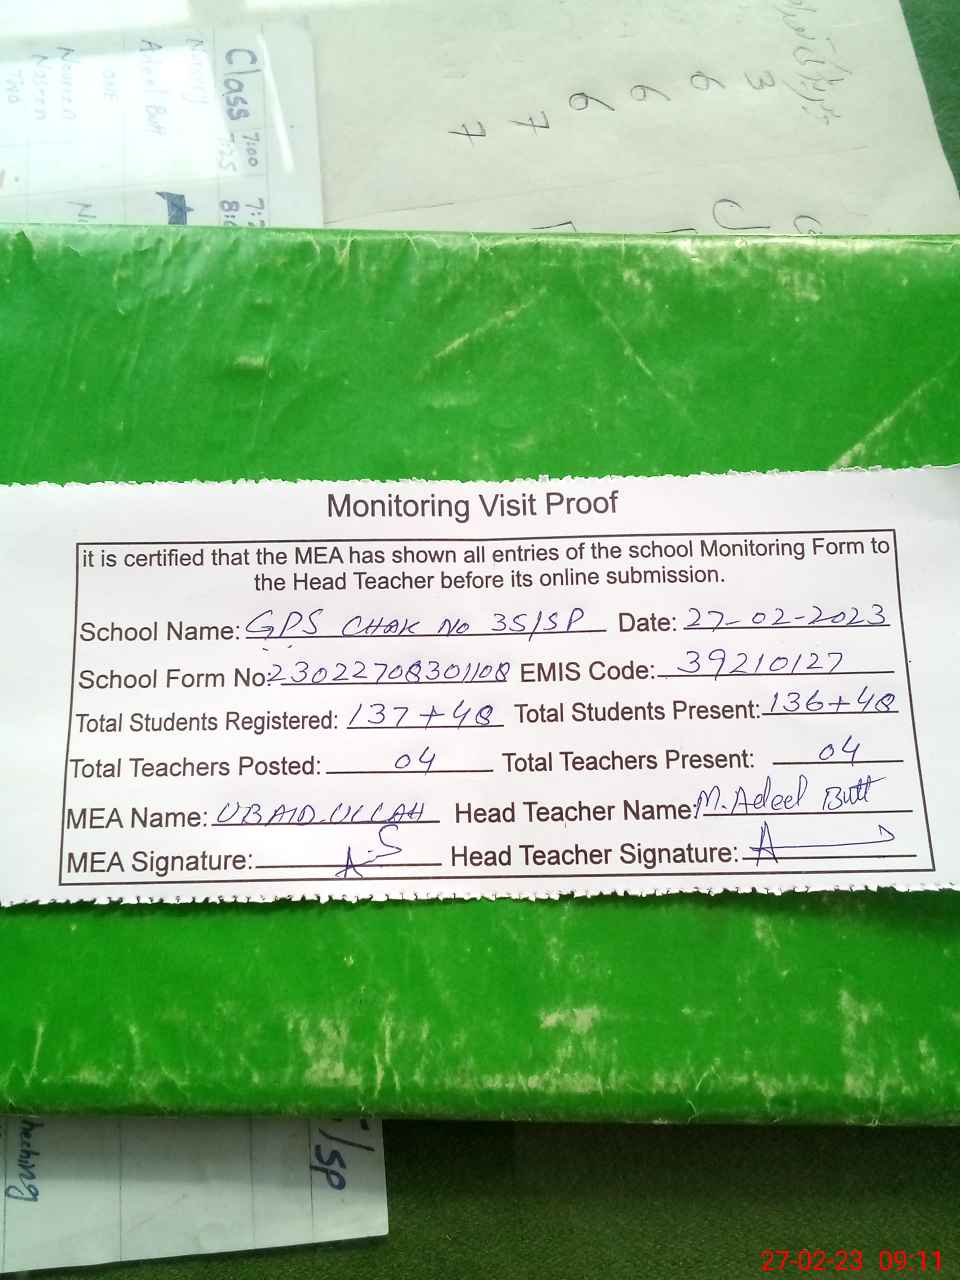 Class 7:00
7:25
Adeel Butt
ONE
Noureen
TWO
3
6
6
6
7
7
Monitoring Visit Proof
it is certified that the MEA has shown all entries of the school Monitoring Form to
the Head Teacher before its online submission.
School Name: GPS CHAK NO 35/SP Date: 27-02-2023
School Form No: 23022708301108 EMIS Code: 39210127
Total Students Registered: 137+48 Total Students Present: 136+48
Total Teachers Posted: 04 Total Teachers Present: 04
MEA Name: UBAID-ULLAH Head Teacher Name: M. Adeel Butt
MEA Signature: Head Teacher Signature:
/SP
27-02-23 09:11